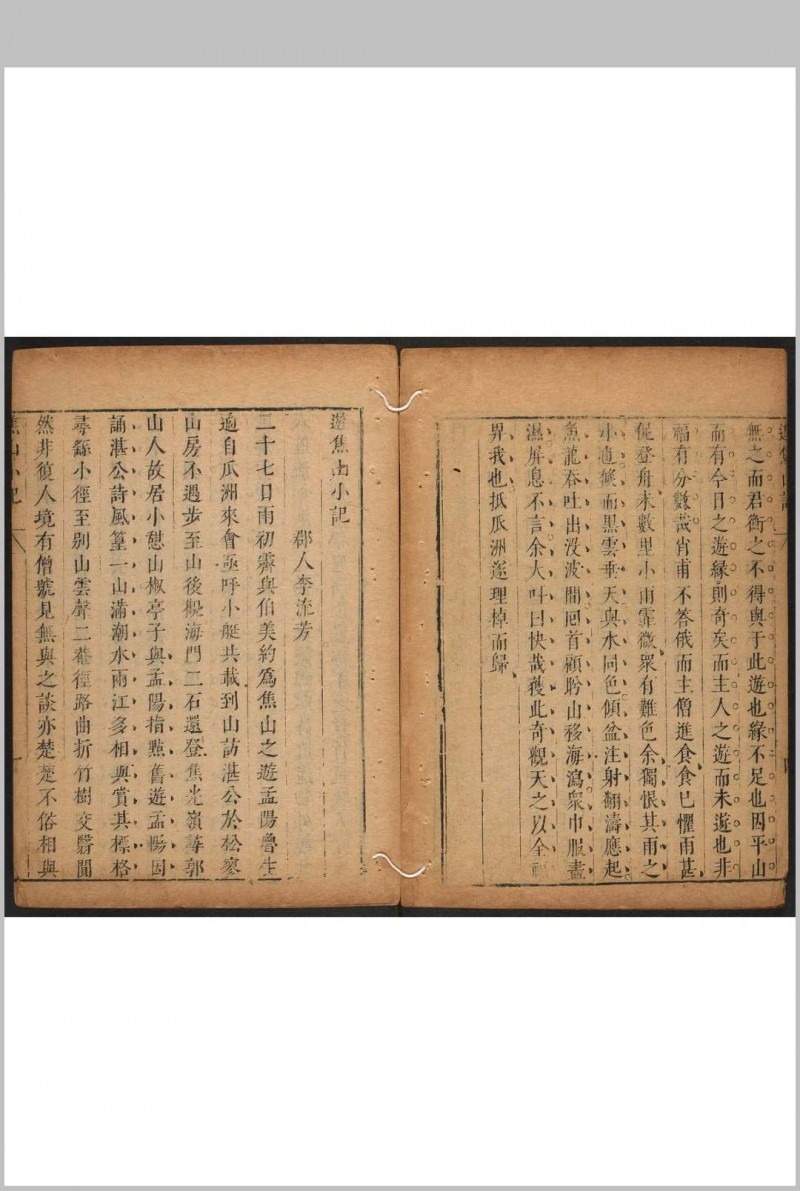 無之而君衡之不得與于此遊也緣不足也因平山
而有今日之遊緣則奇矣而主人之遊而未遊也非
福有分數哉肖甫不答俄而主僧進食食已懼雨甚
促登舟未數里小雨霏微衆有難色余獨恨其雨之
小也倐而黒雲垂天與水同色傾盆注射翻濤應起
魚龍吞吐出没波間囘首顧盻山移海瀉衆巾服盡
濕屏息不言余大叫曰快哉獲此奇觀天之以全
畀我也抵瓜洲遂理棹而歸
遊焦山小記
郡人李流芳
二十七日雨初霽與伯美約爲焦山之遊孟陽魯生
適自瓜洲來會亟呼小艇共載到山訪湛公於松寥
山房不遇步至山後觀海門二石還登焦光嶺尋郭
山人故居小憩山椒亭子與孟陽指點舊遊孟陽因
誦湛公詩風篁一山滿潮水兩江多相與賞其標格
尋繇小徑至别山雲聲二菴徑路曲折竹樹交翳闃
然非復人境有僧號見無與之談亦楚楚不俗相與